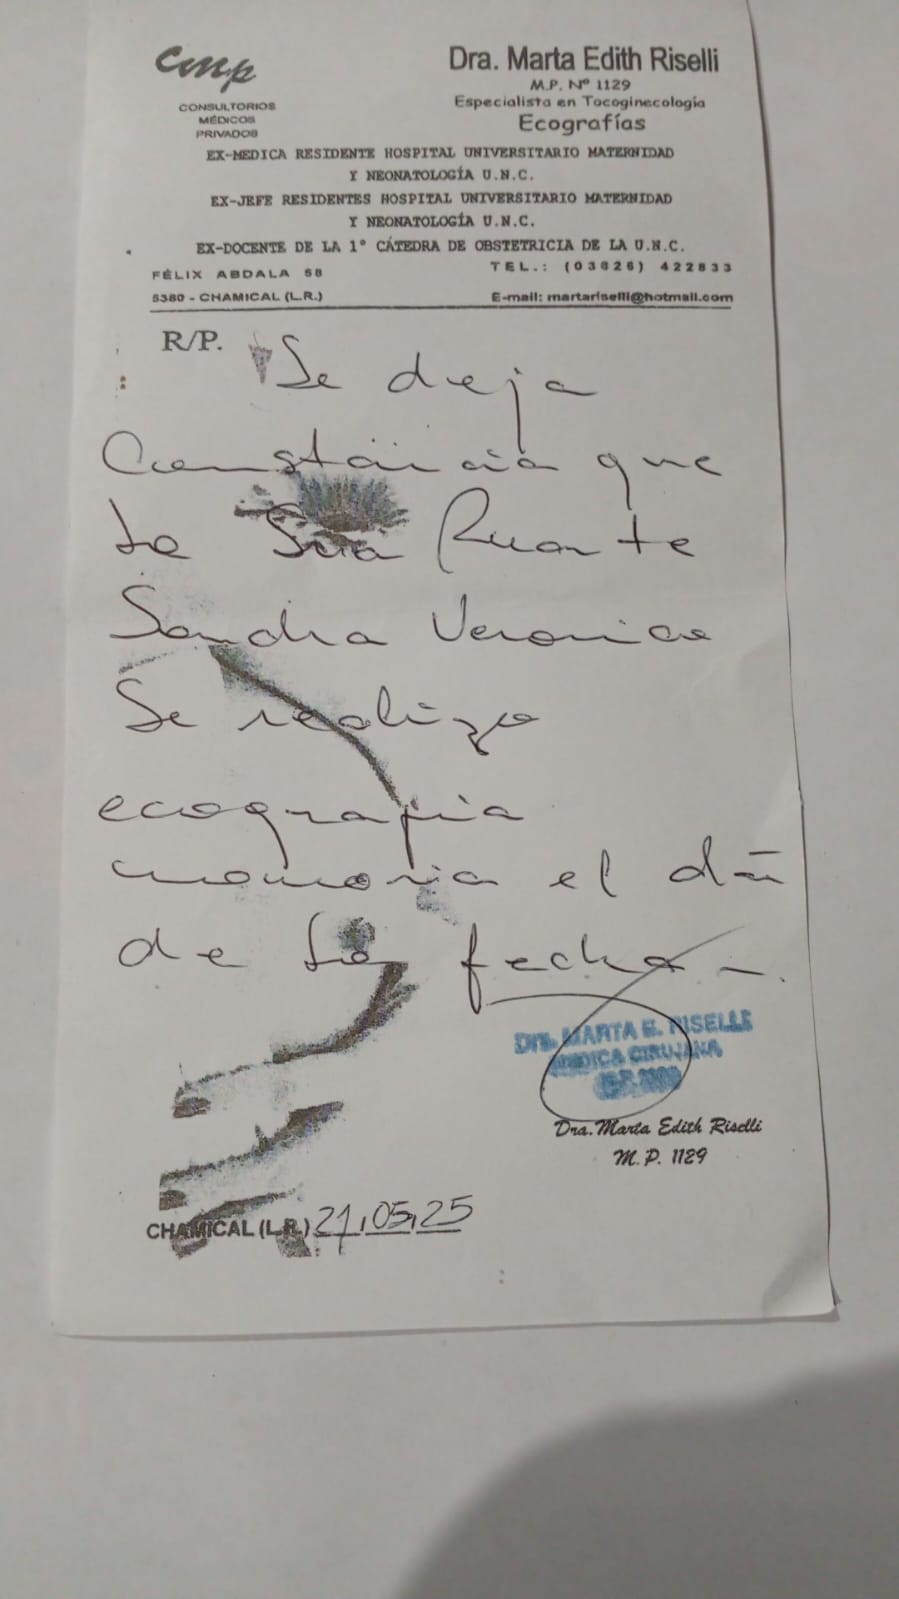 cmp
CONSULTORIOS
MÉDICOS
PRIVADOS
Dra. Marta Edith Riselli
M.P. Nº 1129
Especialista en Tocoginecología
Ecografías
EX-MEDICA RESIDENTE HOSPITAL UNIVERSITARIO MATERNIDAD
Y NEONATOLOGÍA U.N.C.
EX-JEFE RESIDENTES HOSPITAL UNIVERSITARIO MATERNIDAD
Y NEONATOLOGÍA U.N.C.
EX-DOCENTE DE LA 1º CÁTEDRA DE OBSTETRICIA DE LA U.N.C.
FÉLIX ABDALA 68
5380 - CHAMICAL (L.R.)
TEL.: (03826) 422833
E-mail: martariselli@hotmail.com
R/P. Se deja
Constancia que
la Sra Ruarte
Sandra Veronica
Se realizo
ecografia
mamaria el día
de la fecha.
MARTA E. RISELLI
MEDICA CIRUJANA
Dra. Marta Edith Riselli
M.P. 1129
CHAMICAL (L.R.) 21,05,25